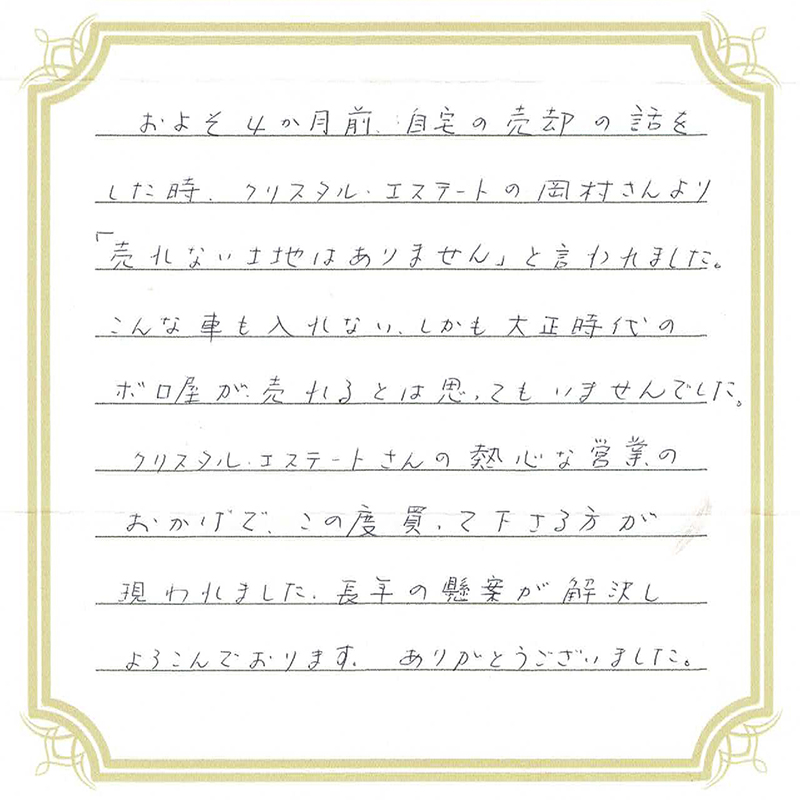 およそ4か月前、自宅の売却の話を
した時、クリスタル・エステートの岡村さんより
「売れない土地はありません」と言われました。
こんな車も入れない、しかも大正時代の
ボロ屋が売れるとは思ってもいませんでした。
クリスタル・エステートさんの熱心な営業の
おかげで、この度買って下さる方が
現われました、長年の懸案が解決し
よろこんでおります。ありがとうございました。